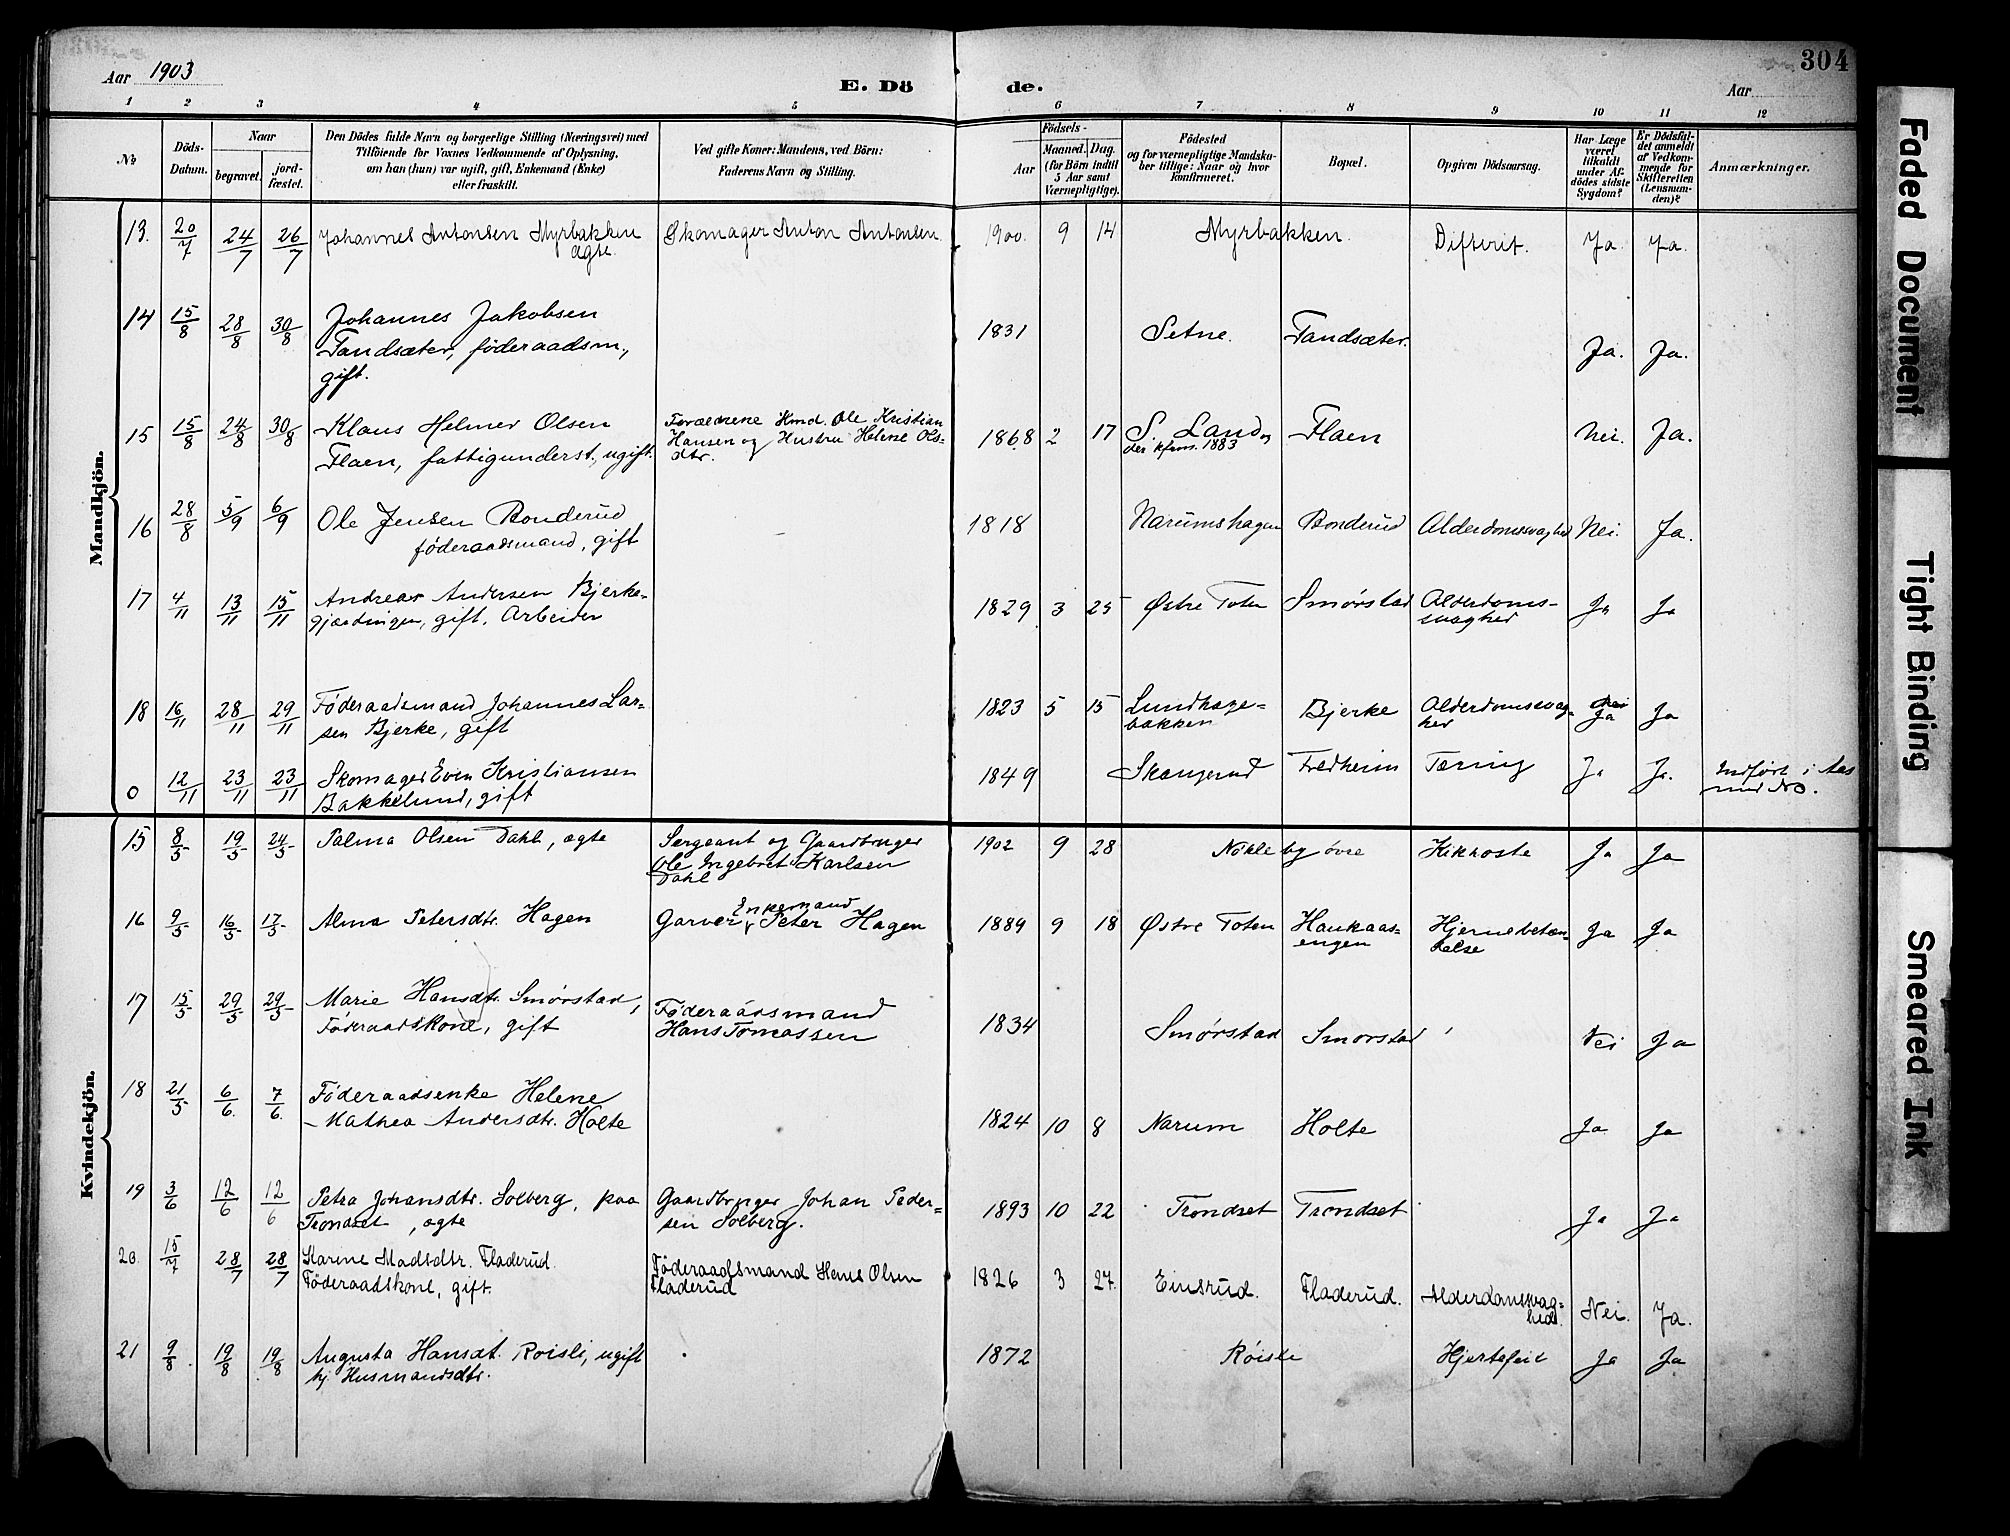 Aar 1903
E. Dö
de.
Aar
304
1 2 3 4 5 6 7 8 9 10 11 12
№
Döds-
Datum.
Naar
begravet.
jord-
fæstet.
Den Dödes fulde Navn og borgerlige Stilling (Næringsvei) med
Tilföiende for Voxnes Vedkommende af Oplysning,
om han (hun) var ugift, gift, Enkemand (Enke)
eller fraskilt.
Ved gifte Koner: Mandens, ved Börn:
Faderens Navn og Stilling.
Födsels-
Aar
Maaned. Dag.
(for Börn indtil
5 Aar samt
Værnepligtige).
Födested
og for værnepligtige Mandska-
ber tillige: Naar og hvor
konfirmeret.
Bopæl.
Opgiven Dödsaarsag.
Har Læge
været
tilkaldt
under Af-
dödes sidste
Sygdom?
Er Dödsfal-
det anmeldt
af Vedkom-
mende for
Skifteretten
(Lensman-
den)?
Anmærkninger.
Mandkjön.
13. 20/7 24/7 26/7 Johannes Antonsen Myrbakken Skomager Anton Antonsen 1900. 9 14 Myrbakken. Difterit. Ja Ja.
ægte.
14 15/8 28/8 30/8 Johannes Jakobsen 1831 Setne. Tandsæter. Ja. Ja.
Tandsæter, föderaadsm.,
gift.
15 15/8 24/8 30/8 Klaus Helmer Olsen Forældrene Hmd. Ole Kristian 1868 2 17 S. Land og Flaen Nei. Ja.
Flaen, fattigunderst., ugift. Hansen og Hustru Helene Ols- der kfrm. 1883
dtr.
16 28/8 5/9 6/9 Ole Jensen Bonderud 1818 Narumshagen Bonderud Alderdomssvaghed Nei. Ja.
föderaadsmand, gift
17 4/11 13/11 15/11 Andreas Andersen Bjerke- 1829 3 25 Østre Toten Smørstad Alderdoms- Ja Ja
gjærdingen, gift. Arbeider svaghed
18 16/11 28/11 29/11 Föderaadsmand Johannes Lar- 1823 5 15 Lundhage- Bjerke Alderdomssvag- Ja Ja
sen Bjerke, gift bakken hed
0 12/11 23/11 23/11 Skomager Even Kristiansen 1849 Skangerud Fredheim Tæring Ja Ja. Indført i Aas
Bakkelund, gift No.
Kvindekjön.
15 8/5 19/5 24/5 Palma Olsen Dahl, ægte Sergeant og Gaardbruger 1902 9 28 Nökleby övre Kikhoste Ja Ja
Ole Ingebret Karlsen
Dahl
16 9/5 16/5 17/5 Alma Petersdtr. Hagen Garver, Enkemand Peter Hagen 1889 9 18 Østre Toten Haukaas- Hjernebetæn- Ja Ja
engen delse
17 15/5 29/5 29/5 Marie Hansdtr. Smørstad, Föderaadsmand 1834 Smørstad Smorstad Nei Ja
Föderaadskone, gift Hans Tomassen
18 21/5 6/6. 7/6. Föderaadsenke Helene 1824 10 8 Narum Holte Ja Ja
Mathea Andersdtr. Holte
19 3/6 12/6 12/6 Petra Johansdtr. Solberg, paa Gaardbruger Johan Peder- 1893 10 22 Trondset Trondset Ja Ja
Trondset, ægte sen Solberg.
20. 15/7 28/7 28/7 Karine Madsdtr. Fladerud. Föderaadsmand Hans Olsen 1826 3 27. Einsrud. Fladerud. Alderdomssvag- Nei. Ja.
Föderaadskone, gift. Fladerud hed.
21 9/8 19/8 19/8 Augusta Hansdt. Roisli, ugift 1872 Röisle Hjertefeil Ja Ja
hj. Husmandsdtr.
Faded Document
Tight Binding
Smeared Ink